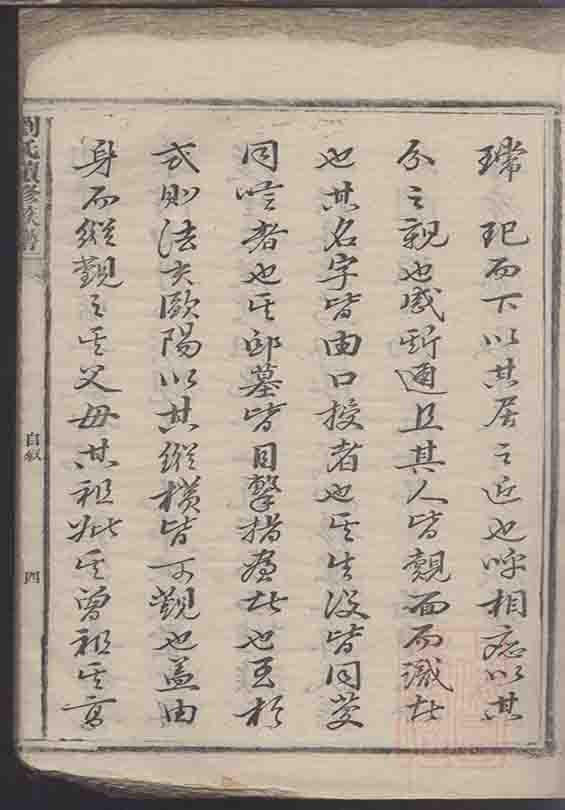 璨 玘而下以其居之近也呼相应以其
分之親也感斯通且其人皆親面而識者
也其名字皆由口授者也其生没皆同荧
同嗟者也其邱墓皆目擊指畫者也至於
式則法夫歐陽以其縱横皆可觀也盖由
身而縱觀之其父母其祖妣其曾祖其高
劉氏續修族譜
自叙
四